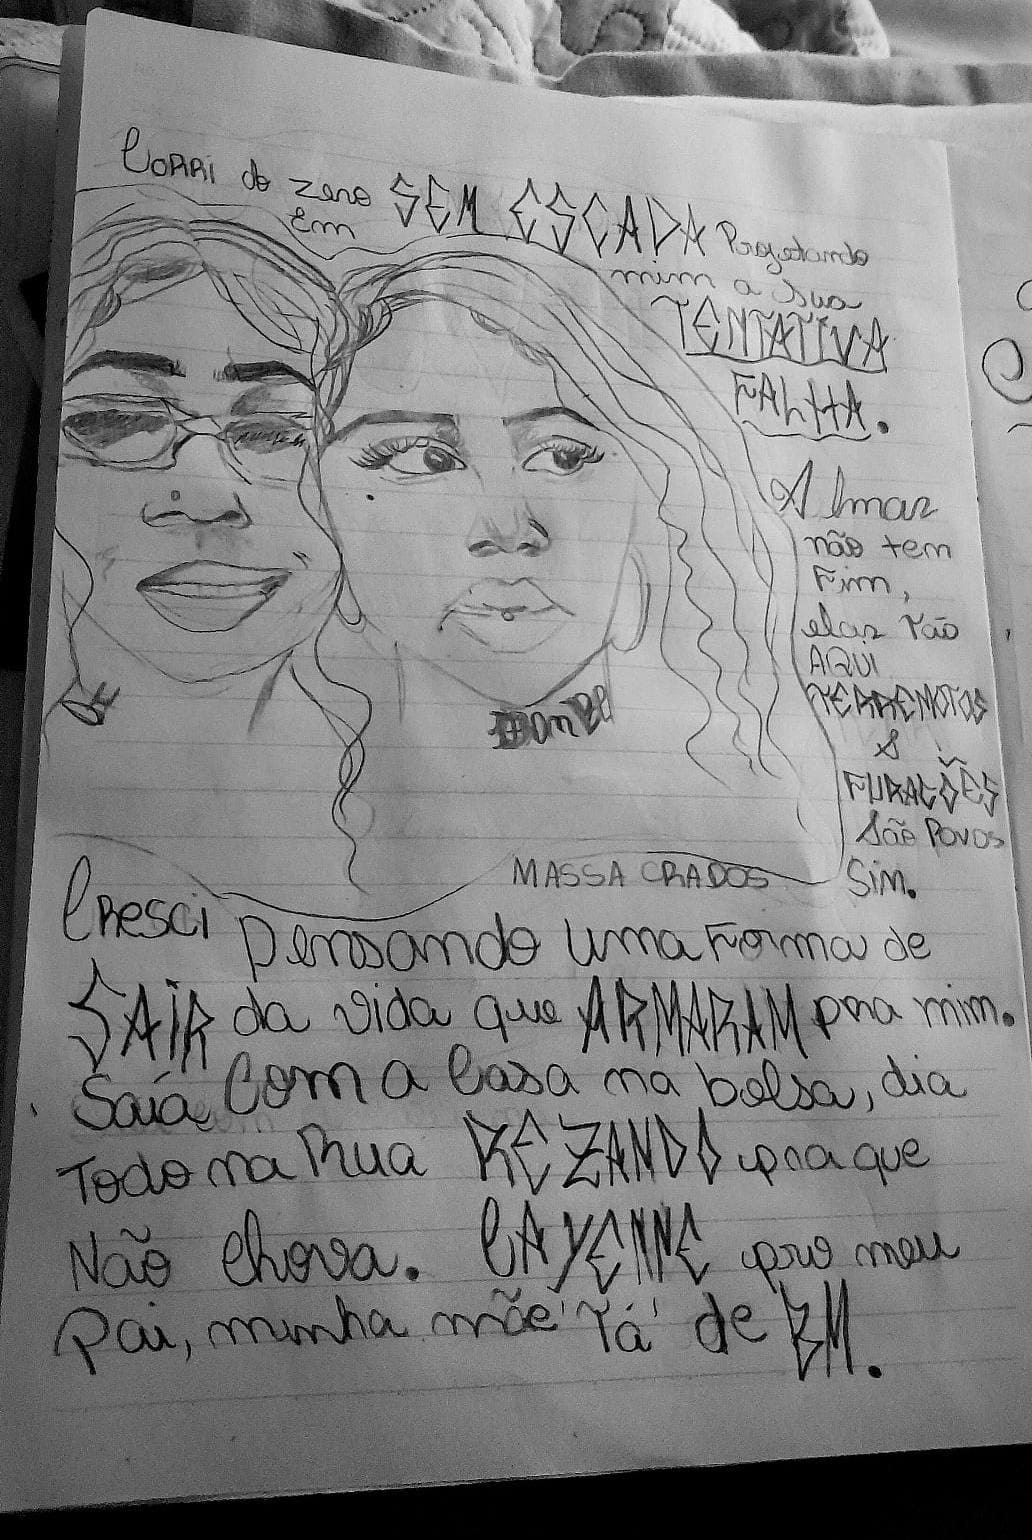 Corri do zero SEM ESCADA Projetando
em
mim a sua
TENTATIVA
FALHA.
Almas
não tem
Fim,
elas Tão
AQUI
TERREMOTOS
&
FURACÕES
São Povos
Sim.
MASSACRADOS
Cresci pensando uma Forma de
SAIR da vida que ARMARAM pra mim.
Saía Com a Casa na bolsa, dia
Todo na Rua REZANDO pra que
Não Chova. CAYENNE pro meu
Pai, minha mãe 'Tá' de BM.